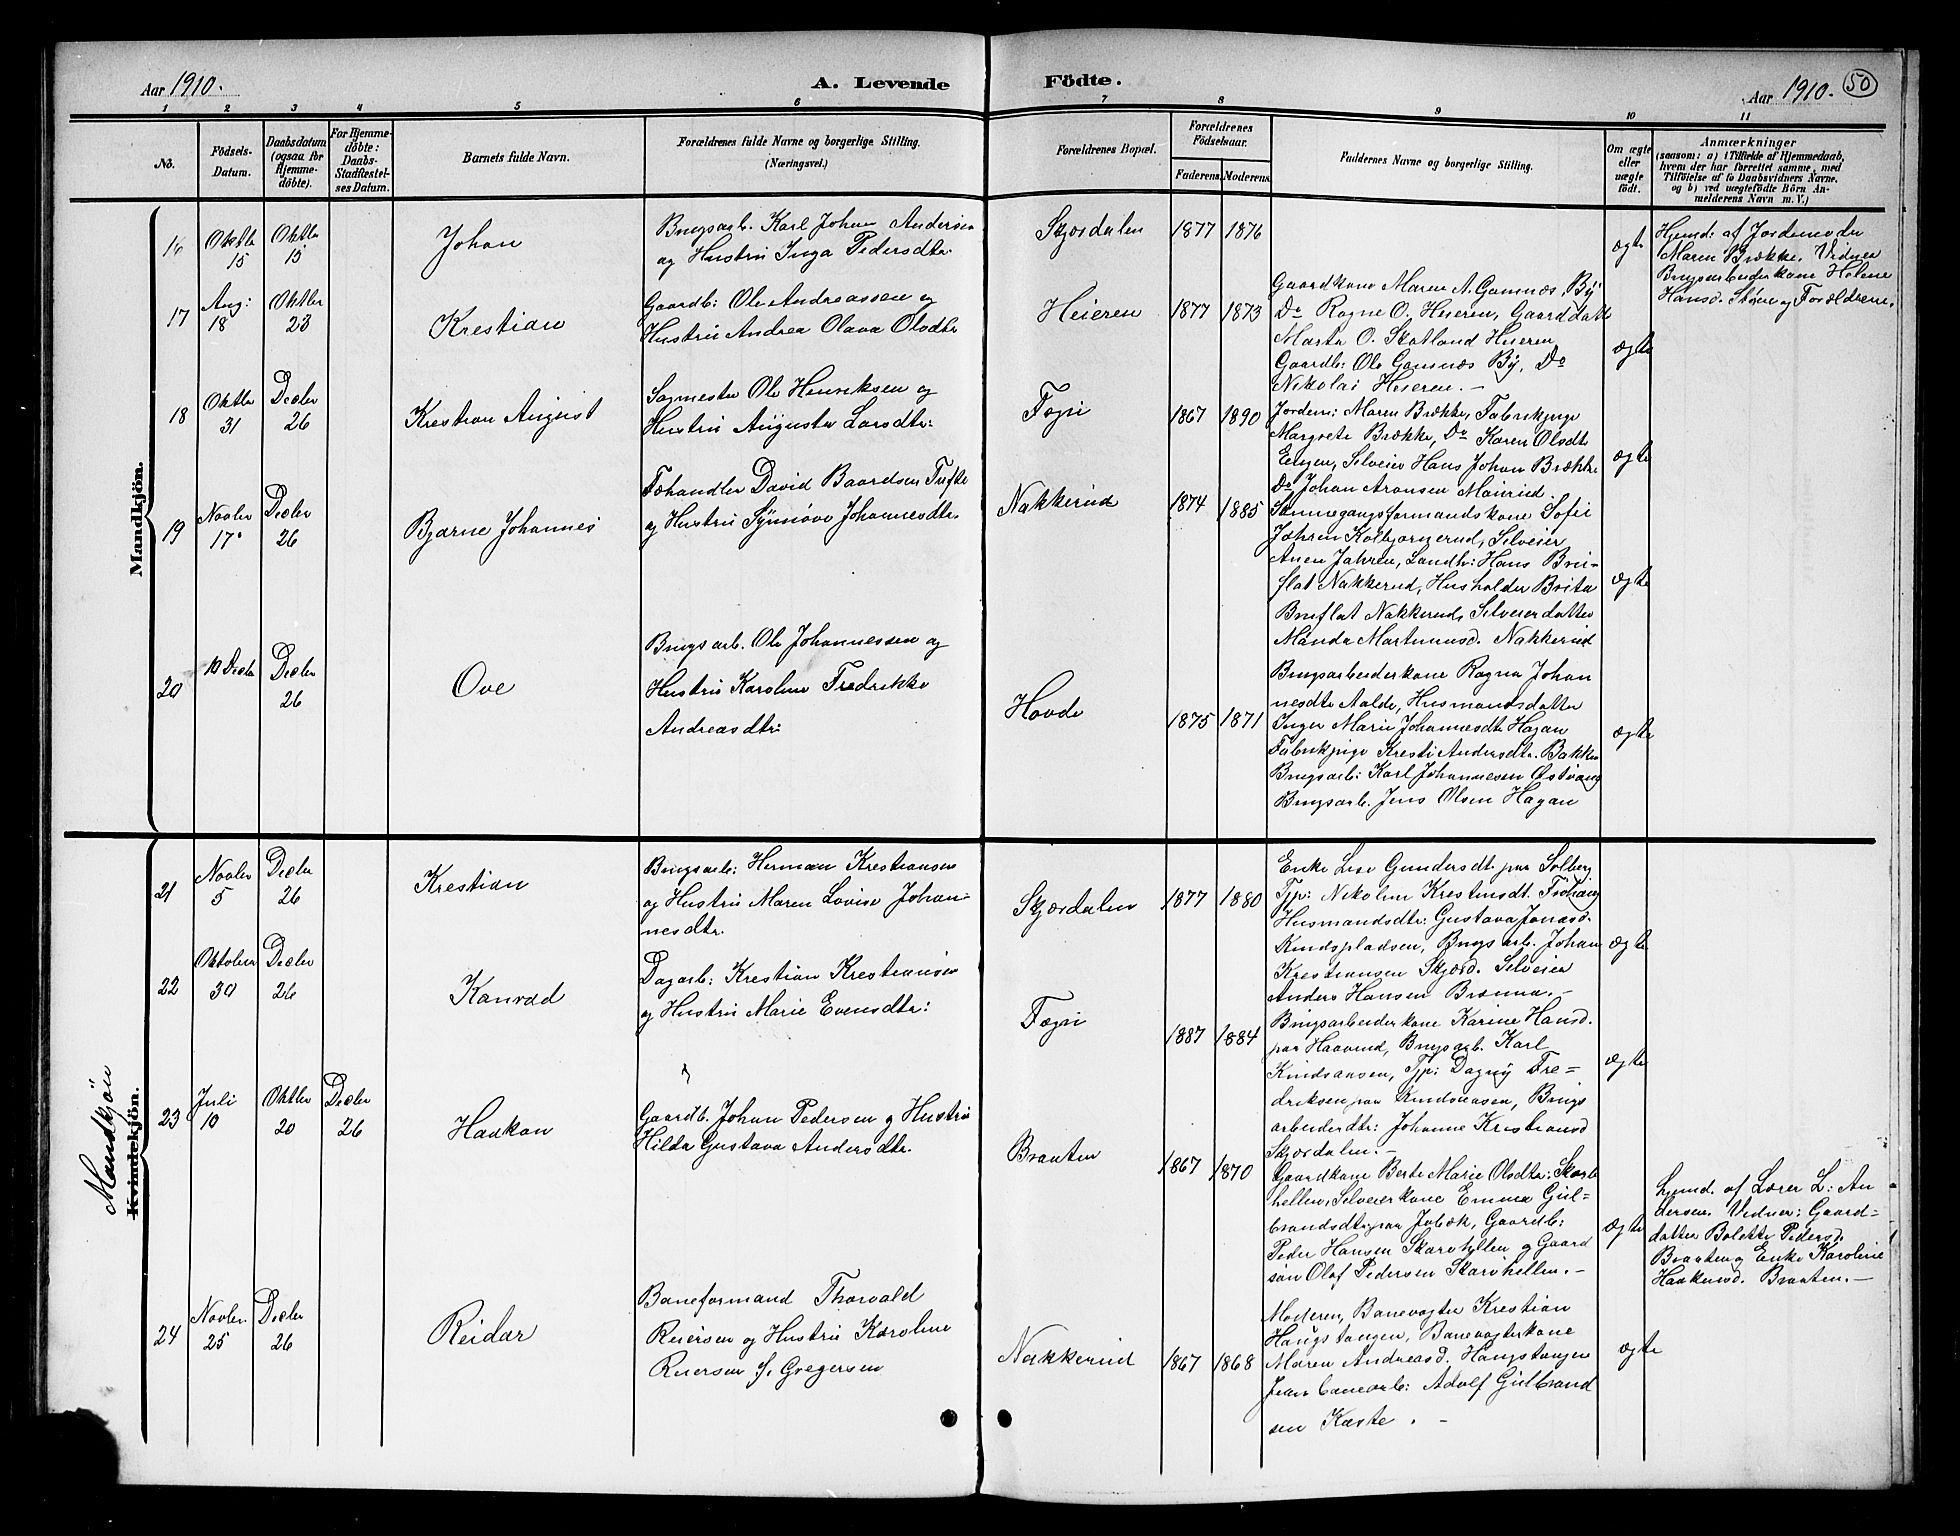 Aar 1910.
A. Levende Födte.
Aar 1910. 50
1 2 3 4 5 6 7 8 9 10 11
Nô.
Födsels-Datum.
Daabsdatum (ogsaa for Hjemme-döbte).
For Hjemme-döbte: Daabs-Stadfæstel-ses Datum.
Barnets fulde Navn.
Forældrenes fulde Navne og borgerlige Stilling. (Næringsvei.)
Forældrenes Bopæl.
Forældrenes Födselsaar.
Faderens. Moderens.
Faddernes Navne og borgerlige Stilling.
Om ægte eller uægte födt.
Anmærkninger
(saasom: a) i Tilfælde af Hjemmedaab,
hvem der har forrettet samme, med
Tilföielse af to Daabsvidners Navne,
og b) ved uægtefödte Börn An-
melderens Navn m. V.)
Mandkjön.
16 Oktbr 15 Oktbr 15
Johan
Brugsarb. Karl Johan Andersen
og Hustru Inga Pedersdtr.
Skjærdalen 1877 1876
ægte
Hjemd: af Jordemoder
Maren Brække. Vidner
Brugsarbeiderkone Helene
Hansd. Støen og Forældrene.
17 Aug: 18 Oktbr 23
Krestian
Gaardb: Ole Andreassen og
Hustru Andrea Olava Olsdtr
Heieren 1877 1873
Gaardkone Maren A. Gomnæs, By
Do Ragne O. Heieren, Gaarddatt
Marta O. Skotland Heieren
Gaardb: Ole Gomnæs By, Do
Nikolai Heieren. -
ægte
18 Oktbr 31 Decbr 26
Krestian August
Sagmester Ole Henriksen og
Hustru Augusta Larsdtr:
Fægri 1867 1890
Jordem: Maren Brække, Fabrikpige
Margrete Brække, Do Karen Olsdtr
Engen, Selveier Hans Johan Brække
Do Johan Aronsen Moirud.
ægte
19 Novbr 17 Decbr 26
Bjarne Johannes
Fæhandler David Baardsen Tufte
og Hustru Synnøve Johannesdtr.
Nakkerud 1874 1885
Stenvegsformandskone Sofie
Jahren Kolbjørnerud, Selveier
Anen Jahren, Landh: Hans Bru-
flat Nakkerud, Husholder Brita
Bruflat Nakkerud, Selveierdatter
Manda Martinusd. Nakkerud
ægte
20 10 Decbr Decbr 26
Ove
Brugsarb. Ole Johannessen og
Hustru Karoline Fredrikke
Andreasdtr:
Hovde 1875 1871
Brugsarbeiderkone Ragna Johan
nesdtr Aalde, Husmandsdatter
Inger Marie Johannesdtr Hagan
Fabrikpige Kresti Andersdtr. Bakken
Brugsarb: Karl Johannesen Østvang
Brugsarb. Jens Olsen Hagan
ægte
Mandkjön
Kvindekjön.
21 Novbr 5 Decbr 26
Krestian
Brugsarb: Herman Krestiansen
og Hustru Maren Lovise Johan-
nesdtr.
Skjærdalen 1877 1880
Enke Lise Gundersdt. paa Solberg
Tjp: Nikoline Krestinsdt.
Husmandsdtr: Gustava Jonasd.
Kindspladsen, Brugsarb. Johan
Krestiansen Skjærd. Selveier
Anders Hansen Brænna. -
ægte
22 Oktober 30 Decbr 26
Konrad
Dagarb: Krestian Krestiansen
og Hustru Marie Evensdtr:
Fægri 1887 1884
Brugsarbeiderkone Karine Hansd.
paa Haavrud, Brugsarb. Karl
Knudsensen, Tjp: Dagny Fre-
driksen paa Knudsenesen, Brugs
arbeiderdtr: Johanne Kristiansd
Skjærdalen. -
ægte
23 Juli 10 Oktbr 20 Decbr 26
Haakon
Gaardb. Johan Pedersen og Hustru
Hilda Gustava Andersdtr.
Braaten 1867 1870
Gaardkone Berte Marie Olsdtr: Skarv
hellen, Selveierkone Emma Gul-
brandsdtr paa Jobæk, Gaardb:
Peder Hansen Skarvhellen og Gaard
søn Olaf Pedersen Skarvhellen. -
ægte
hjemd. af Lærer L: An
dersen. Vidner: Gaard-
datter Bolette Pedersd.
Braaten og Enke Karoline
Haakensd. Braaten. -
24 Novbr 25 Decbr 26
Reidar
Baneformand Thorvald
Ruersen og Hustru Karoline
Ruersen f. Gregersen
Nakkerud 1867 1868
Moderen, Banevogter Krestian
Haugstangen, Banevogterkone
Maren Andreasd. Haugstangen
Jernbanearb: Adolf Gulbrand
sen Kæste. -
ægte